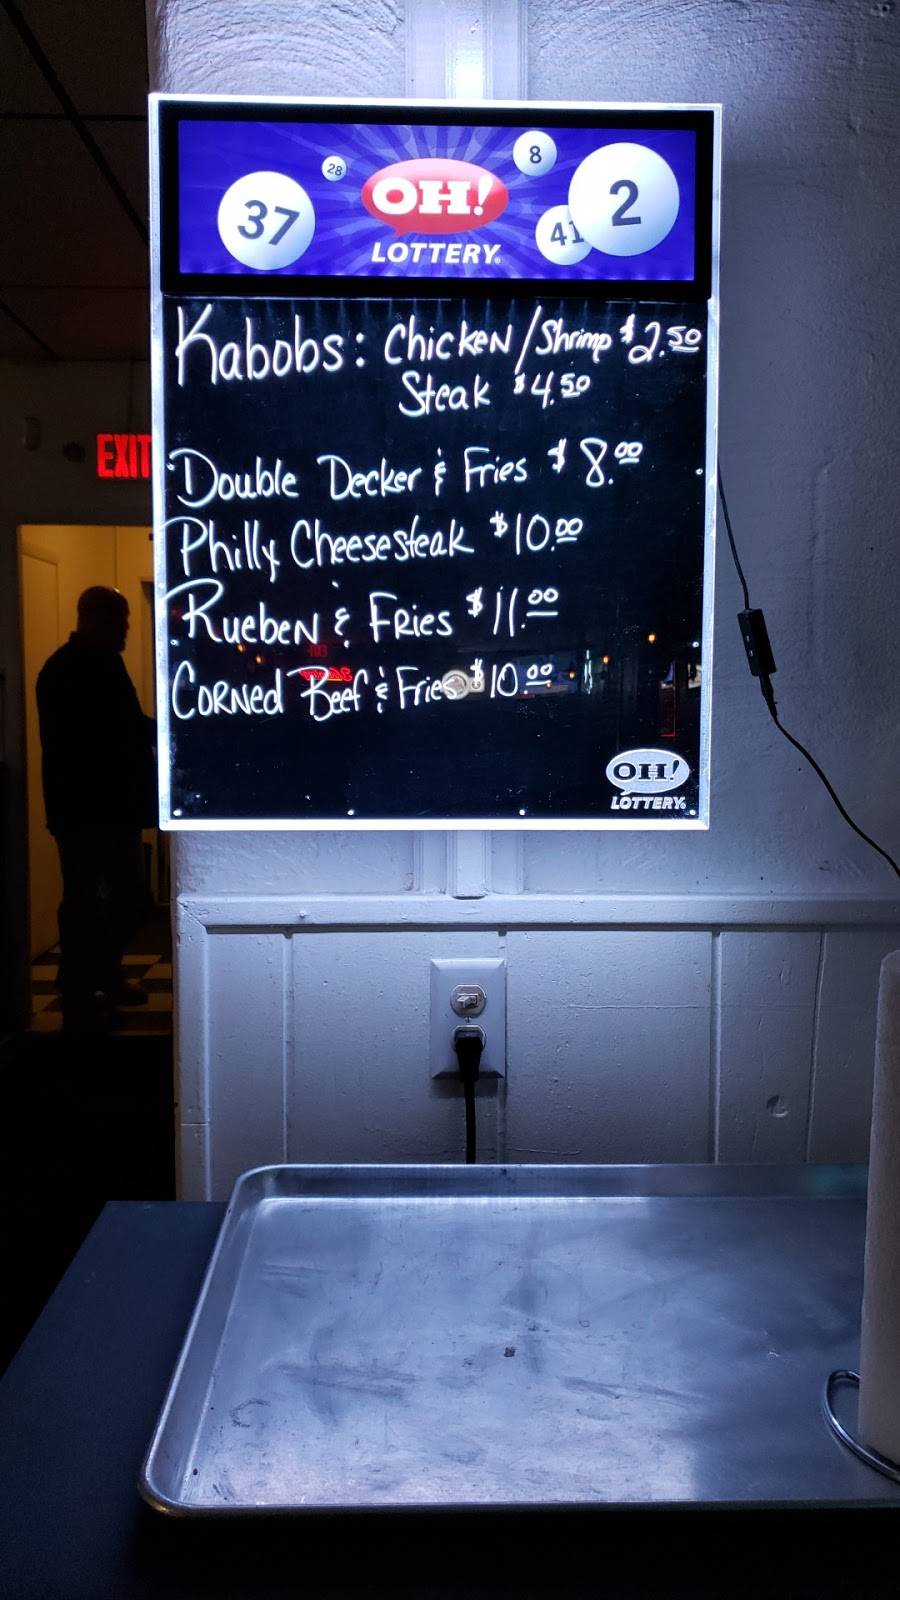 37
28
OH!
LOTTERY
8
41
2
Kabobs: Chicken/Shrimp $2.50
Steak $4.50
Double Decker & Fries $8.00
Philly Cheesesteak $10.00
Rueben & Fries $11.00
Corned Beef & Fries $10.00
OH!
LOTTERY
EXIT